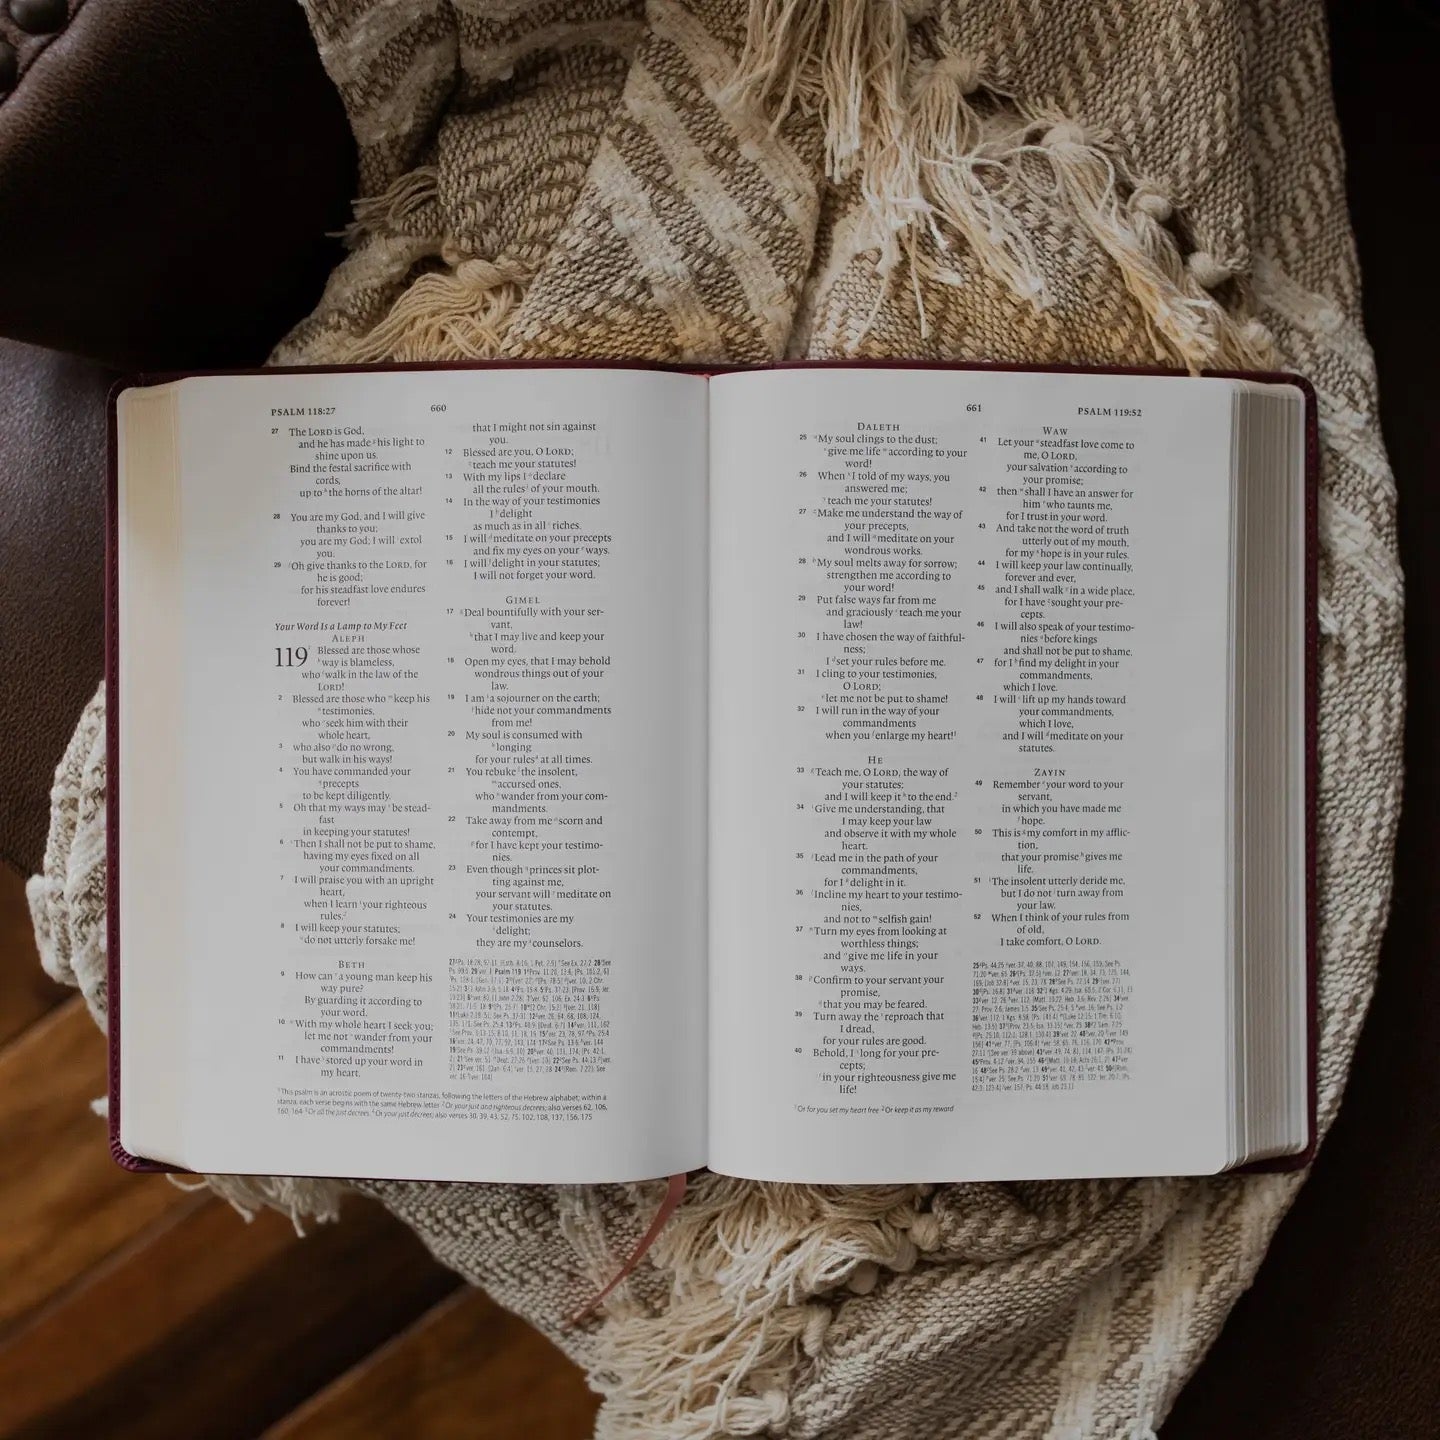 PSALM 118:27
660
27 The LORD is God,
and he has made his light to
shine upon us.
Bind the festal sacrifice with
cords,
up to the horns of the altar!
28 You are my God, and I will give
thanks to you;
you are my God; I will extol
you.
29 Oh give thanks to the LORD, for
he is good;
for his steadfast love endures
forever!
Your Word Is a Lamp to My Feet
ALEPH
119 Blessed are those whose
way is blameless,
who walk in the law of the
LORD!
2 Blessed are those who keep his
testimonies,
who seek him with their
whole heart,
3 who also do no wrong,
but walk in his ways!
4 You have commanded your
precepts
to be kept diligently.
5 Oh that my ways may be stead-
fast
in keeping your statutes!
6 Then I shall not be put to shame,
having my eyes fixed on all
your commandments.
7 I will praise you with an upright
heart,
when I learn your righteous
rules.
8 I will keep your statutes;
do not utterly forsake me!
BETH
9 How can a young man keep his
way pure?
By guarding it according to
your word.
10 With my whole heart I seek you;
let me not wander from your
commandments!
11 I have stored up your word in
my heart,
that I might not sin against
you.
12 Blessed are you, O LORD;
teach me your statutes!
13 With my lips I declare
all the rules of your mouth.
14 In the way of your testimonies
I delight
as much as in all riches.
15 I will meditate on your precepts
and fix my eyes on your ways.
16 I will delight in your statutes;
I will not forget your word.
GIMEL
17 Deal bountifully with your ser-
vant,
that I may live and keep your
word.
18 Open my eyes, that I may behold
wondrous things out of your
law.
19 I am a sojourner on the earth;
hide not your commandments
from me!
20 My soul is consumed with
longing
for your rules at all times.
21 You rebuke the insolent,
accursed ones,
who wander from your com-
mandments.
22 Take away from me scorn and
contempt,
for I have kept your testimo-
nies.
23 Even though princes sit plot-
ting against me,
your servant will meditate on
your statutes.
24 Your testimonies are my
delight;
they are my counselors.
1 This psalm is an acrostic poem of twenty-two stanzas, following the letters of the Hebrew alphabet; within a
stanza, each verse begins with the same Hebrew letter 2 Or your just and righteous decrees; also verses 62, 106,
160, 164 3 Or all the just decrees 4 Or your just decrees; also verses 30, 39, 43, 52, 75, 102, 108, 137, 156, 175
661
PSALM 119:52
DALETH
25 My soul clings to the dust;
give me life according to your
word!
26 When I told of my ways, you
answered me;
teach me your statutes!
27 Make me understand the way of
your precepts,
and I will meditate on your
wondrous works.
28 My soul melts away for sorrow;
strengthen me according to
your word!
29 Put false ways far from me
and graciously teach me your
law!
30 I have chosen the way of faithful-
ness;
I set your rules before me.
31 I cling to your testimonies,
O LORD;
let me not be put to shame!
32 I will run in the way of your
commandments
when you enlarge my heart!
HE
33 Teach me, O LORD, the way of
your statutes;
and I will keep it to the end.
34 Give me understanding, that
I may keep your law
and observe it with my whole
heart.
35 Lead me in the path of your
commandments,
for I delight in it.
36 Incline my heart to your testimo-
nies,
and not to selfish gain!
37 Turn my eyes from looking at
worthless things;
and give me life in your
ways.
38 Confirm to your servant your
promise,
that you may be feared.
39 Turn away the reproach that
I dread,
for your rules are good.
40 Behold, I long for your pre-
cepts;
in your righteousness give me
life!
WAW
41 Let your steadfast love come to
me, O LORD,
your salvation according to
your promise;
42 then shall I have an answer for
him who taunts me,
for I trust in your word.
43 And take not the word of truth
utterly out of my mouth,
for my hope is in your rules.
44 I will keep your law continually,
forever and ever,
45 and I shall walk in a wide place,
for I have sought your pre-
cepts.
46 I will also speak of your testimo-
nies before kings
and shall not be put to shame,
47 for I find my delight in your
commandments,
which I love.
48 I will lift up my hands toward
your commandments,
which I love,
and I will meditate on your
statutes.
ZAYIN
49 Remember your word to your
servant,
in which you have made me
hope.
50 This is my comfort in my afflic-
tion,
that your promise gives me
life.
51 The insolent utterly deride me,
but I do not turn away from
your law.
52 When I think of your rules from
of old,
I take comfort, O LORD.
1 Or for you set my heart free 2 Or keep it as my reward